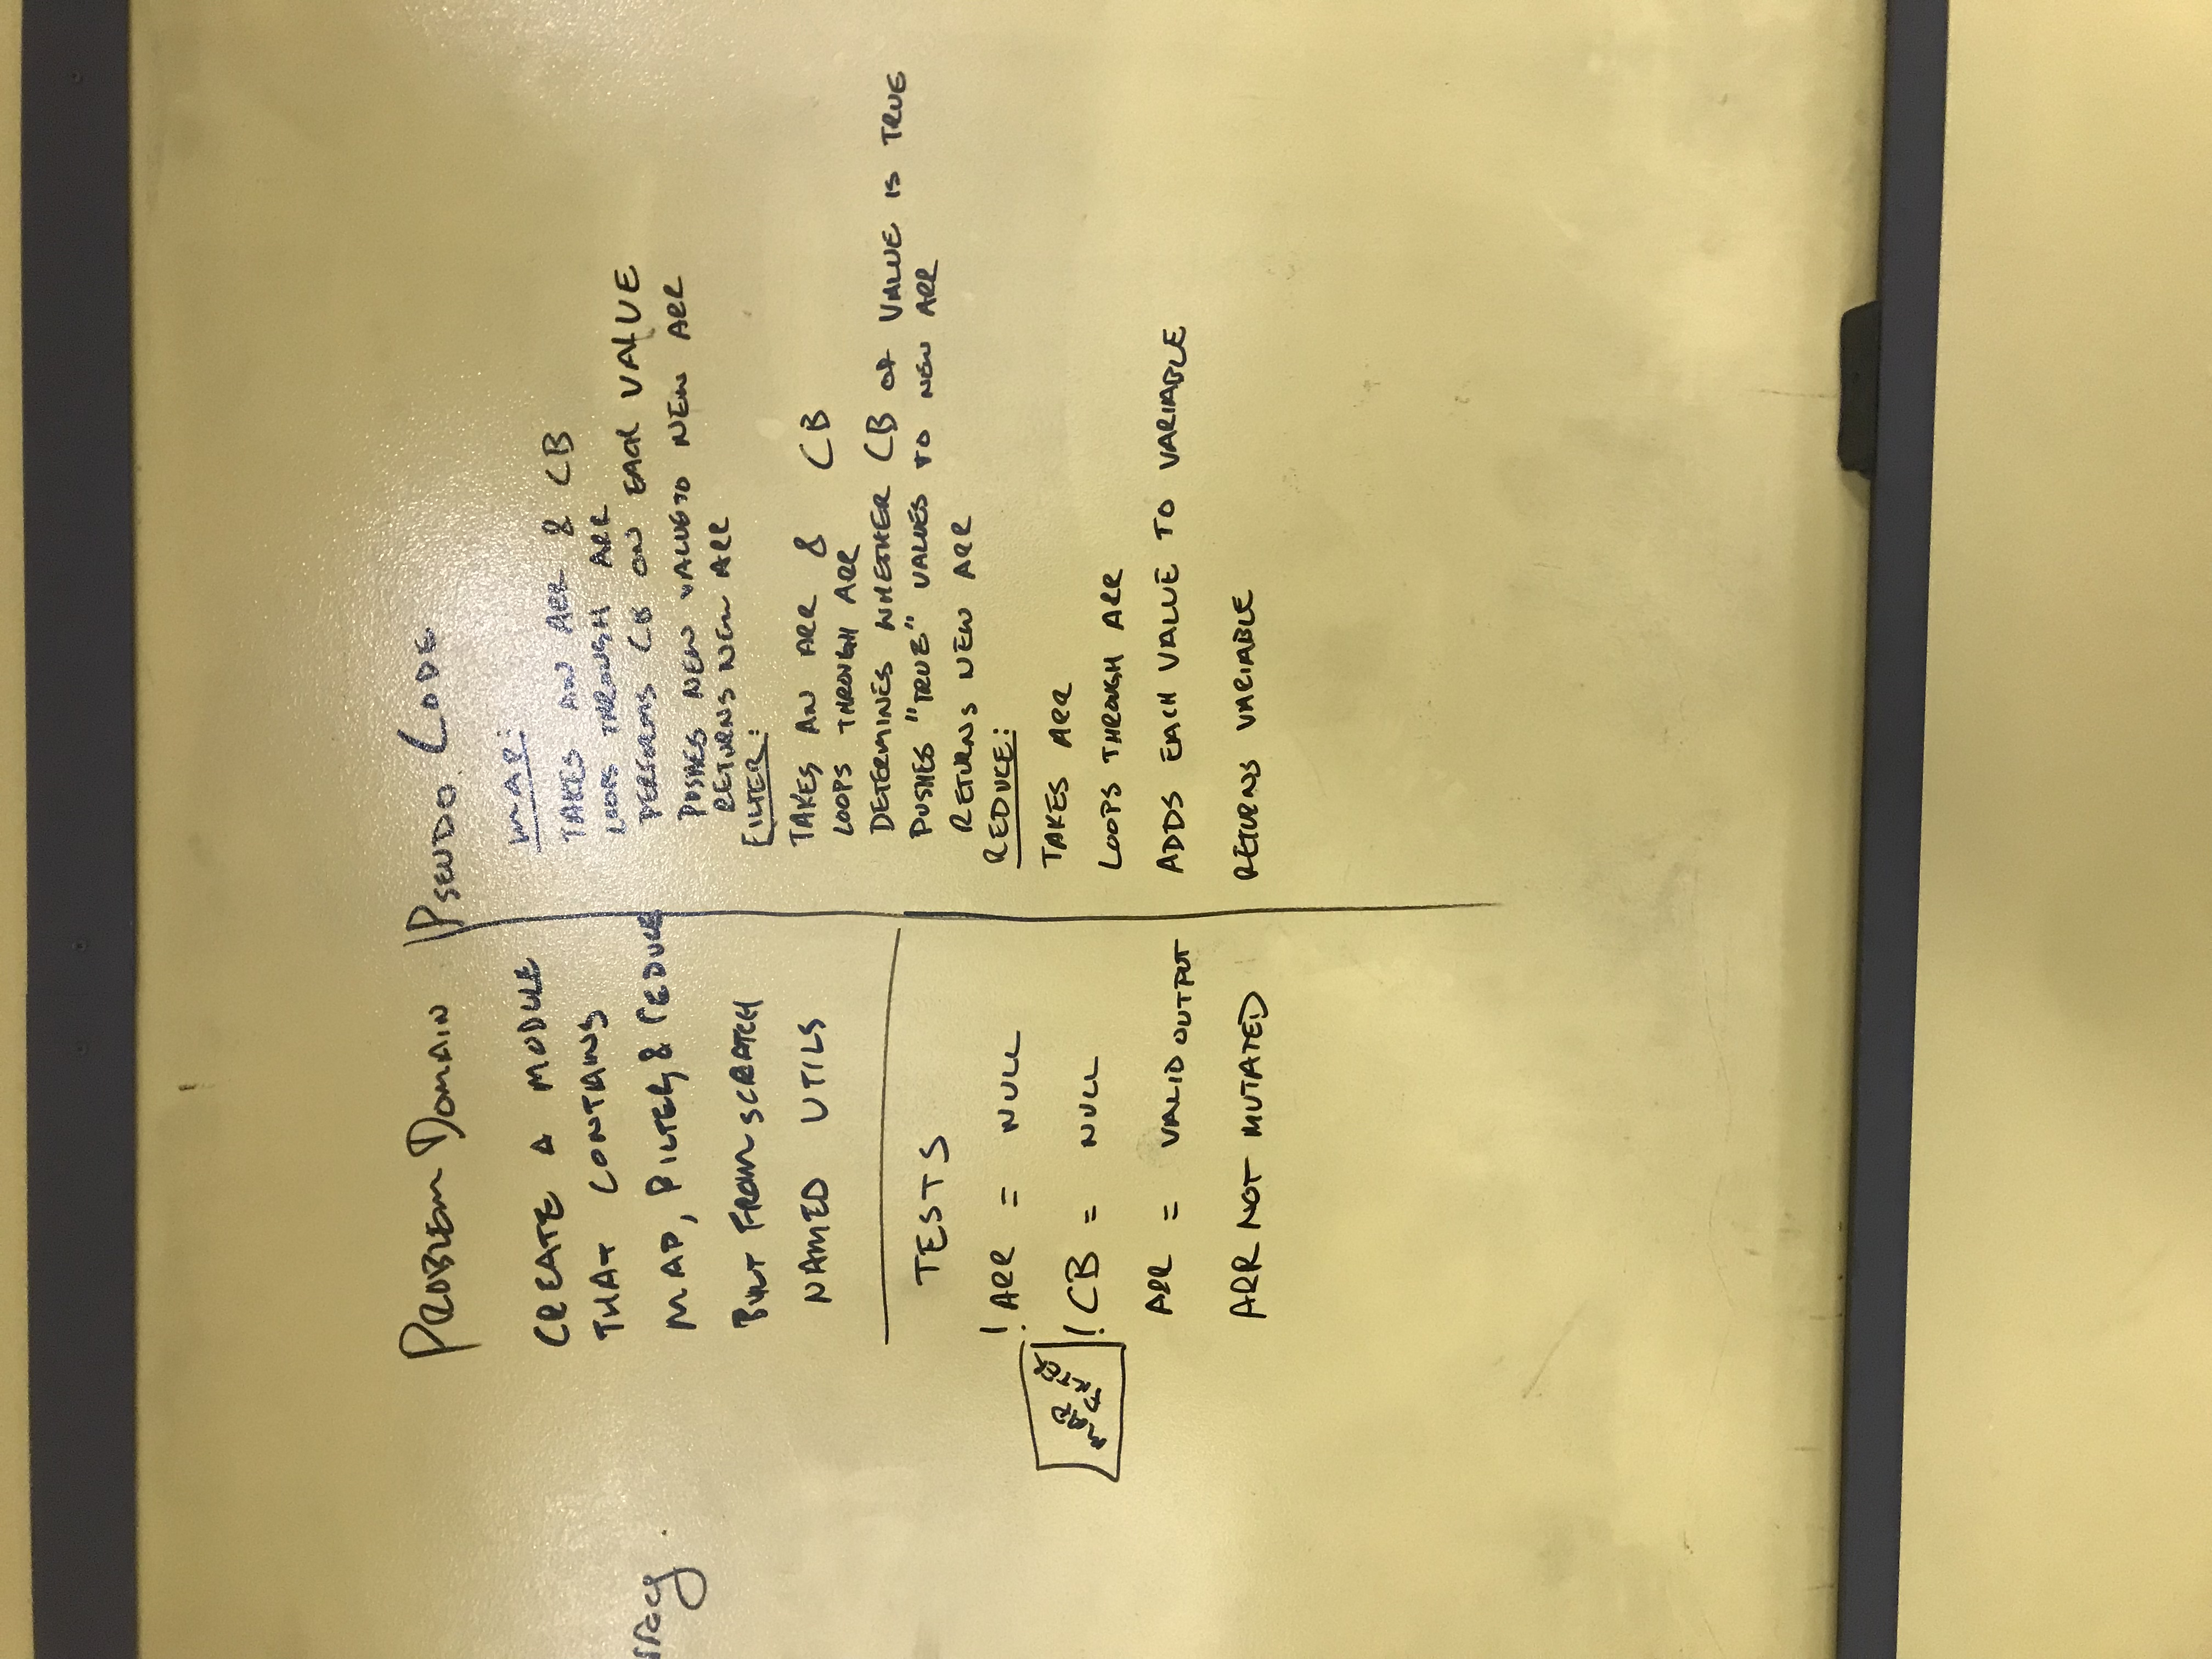 PROBLEM DOMAIN
CREATE A MODULE
THAT CONTAINS
MAP, FILTER, & REDUCE
BUILT FROM SCRATCH
NAMED UTILS
TESTS
!ARR = NULL
MAP
FILTER
!CB = NULL
ARR = VALID OUTPUT
ARR NOT MUTATED
PSEUDO CODE
MAP:
TAKES AN ARR & CB
LOOPS THROUGH ARR
PERFORMS CB ON EACH VALUE
PUSHES NEW VALUE TO NEW ARR
RETURNS NEW ARR
FILTER:
TAKES AN ARR & CB
LOOPS THROUGH ARR
DETERMINES WHETHER CB OF VALUE IS TRUE
PUSHES "TRUE" VALUES TO NEW ARR
RETURNS NEW ARR
REDUCE:
TAKES ARR
LOOPS THROUGH ARR
ADDS EACH VALUE TO VARIABLE
RETURNS VARIABLE